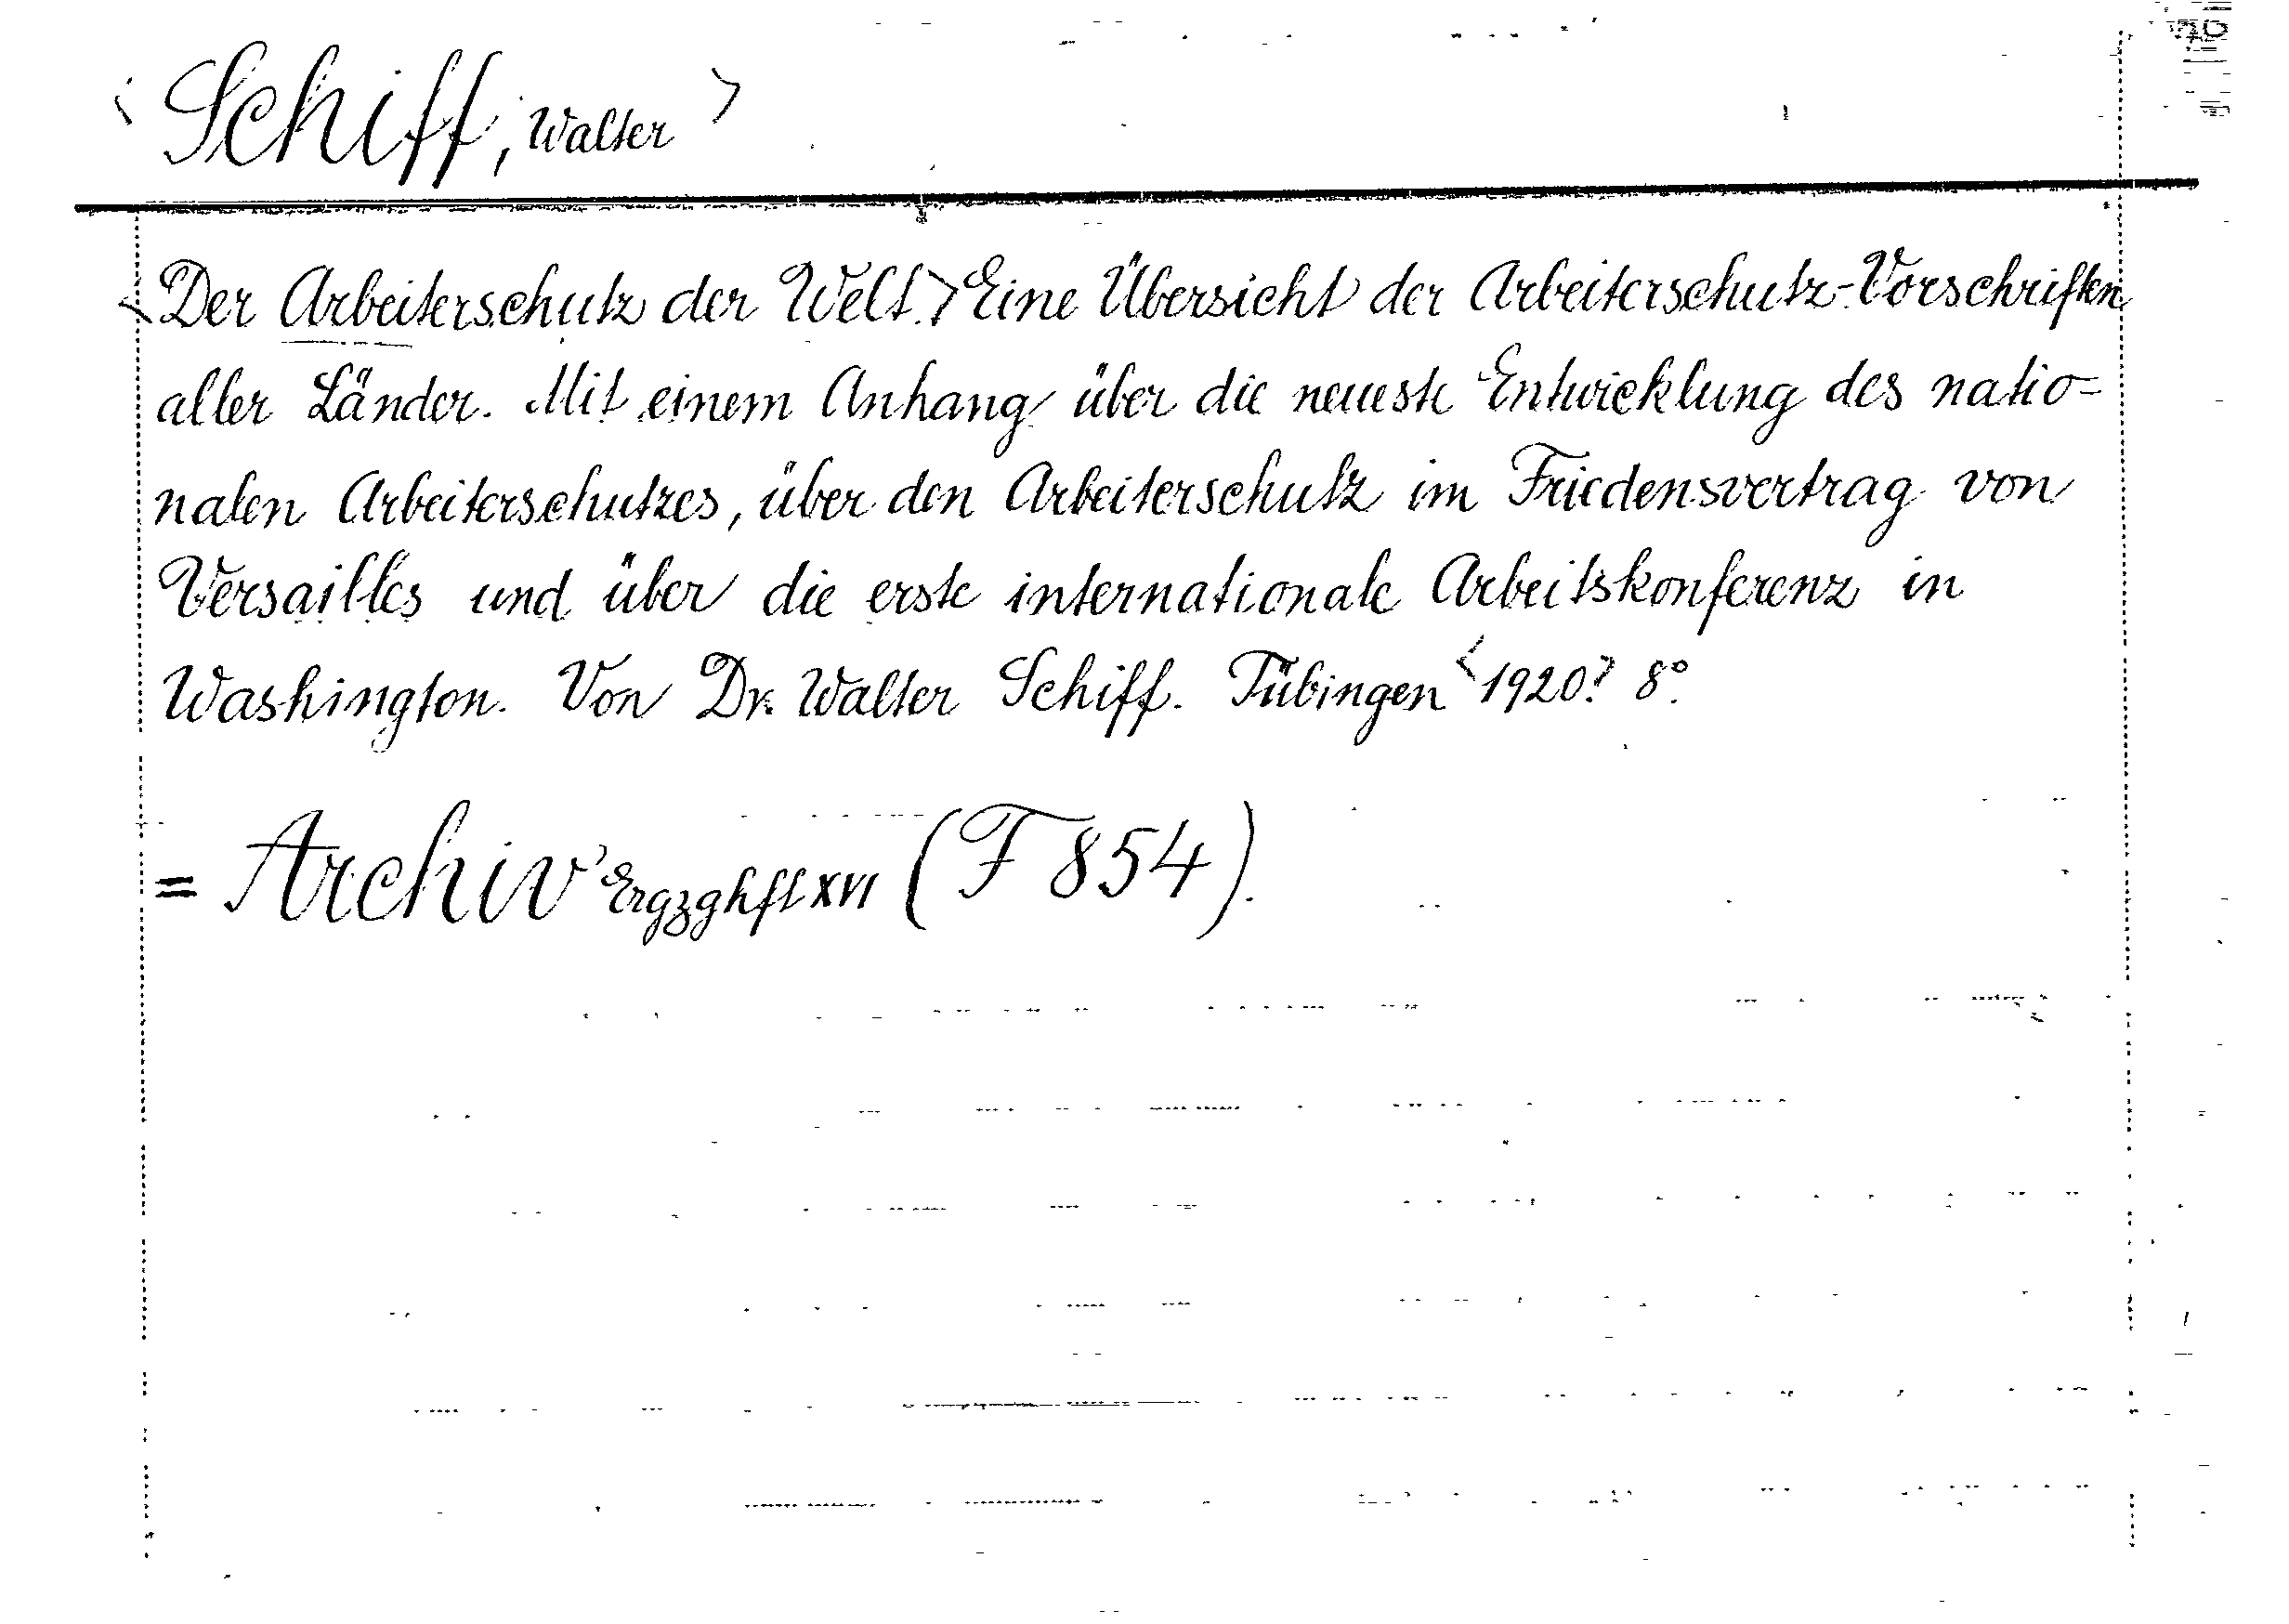 <Schiff, Walter>
<Der Arbeiterschutz der Welt.> Eine Übersicht der Arbeiterschutz-Vorschriften
aller Länder. Mit einem Anhang über die neueste Entwicklung des natio=
nalen Arbeiterschutzes, über den Arbeiterschutz im Friedensvertrag von
Versailles und über die erste internationale Arbeitskonferenz in
Washington. Von Dr. Walter Schiff. Tübingen <1920> 8°.
= Archiv Ergzghft XVI (F 854).